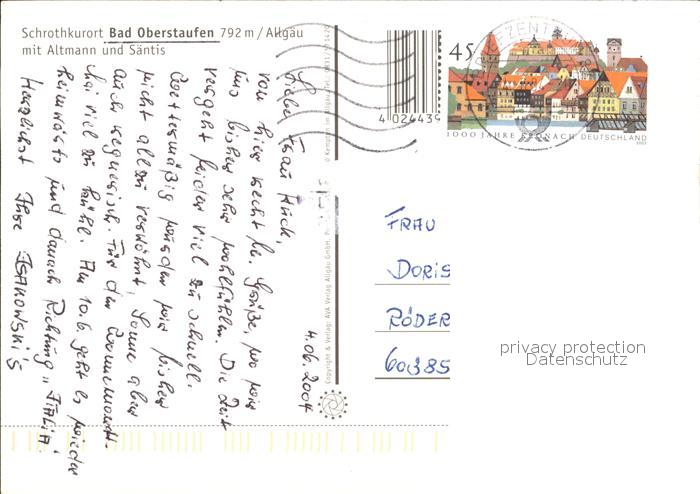 Schrothkurort Bad Oberstaufen 792 m / Allgäu
mit Altmann und Säntis
4.06.2004
Liebe Frau Huck,
von hier recht hl. Grüße, wo wir
uns bisher sehr wohlfühlen. Die Zeit
vergeht leider viel zu schnell.
Wettermäßig wurden wir bisher
nicht allzu verwöhnt, Sonne aber
auch regnerisch. Für den Sommermonat
viel zu kühl. Am 10.6. geht es wieder
heimwärts und danach Richtung "ITALIA".
Herzlichst Ihre ISAKOWSKI'S
4 024439
45
BRIEFZENTRUM
1000 JAHRE KRONACH DEUTSCHLAND
2003
FRAU
DORIS
RÖDER
60385
privacy protection
Datenschutz
Copyright & Verlag AVA Verlag Allgäu GmbH